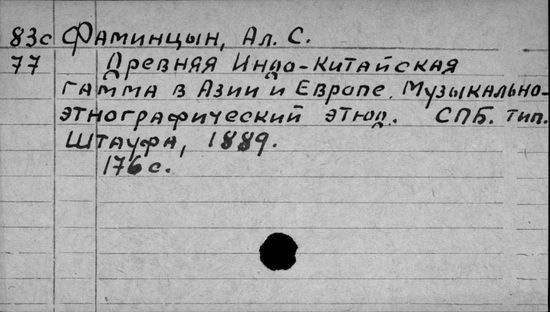 83с Фаминцын, Ал. С.
77 Древняя Индо-Китайская
гамма в Азии и Европе. Музыкально-
этнографический этюд. СПБ. тип.
Штауфа, 1889.
176 с.